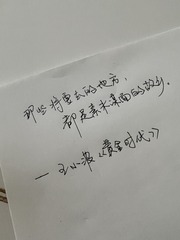 那些将要去的地方,
都是素未谋面的故乡。
— 王小波《黄金时代》